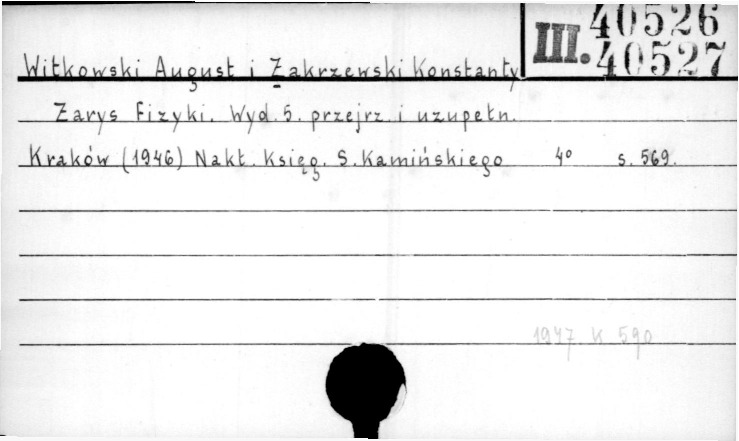 III. 40526
40527
Witkowski August i Zakrzewski Konstanty
Zarys Fizyki. Wyd. 5. przejrz. i uzupełn.
Kraków (1946) Nakł. Księg. S. Kamińskiego 4° s. 569.
1947. K 590